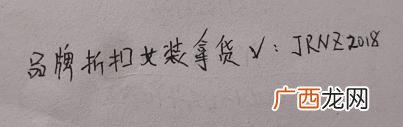 品牌折扣女装拿货V:JRNZ2018
广西龙网